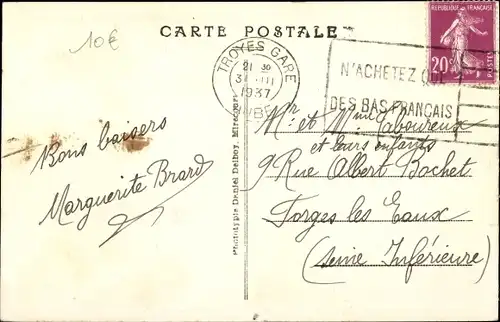 10€
CARTE POSTALE
TROYES GARE
21 30
3 III
1937
AUBE
N'ACHETEZ QUE
DES BAS FRANÇAIS
REPUBLIQUE FRANÇAISE
20c
POSTES
Bons baisers
Marguerite Brard
Phototypie Daniel Delboy, Mirecourt
Mr et Mme Laboureux
et leurs enfants
9 Rue Albert Bochet
Forges les Eaux
(Seine Inférieure)